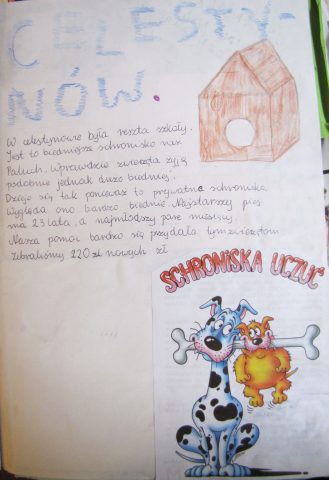 CELESTY-
NÓW.
W celestynowe była reszta szkoły.
Jest to biedniejsze schronisko niż
Paluch. Wprawdzie zwierzęta żyją
podobnie jednak dużo biedniej.
Dzieje się tak ponieważ to prywatne schronisko.
Wygląda ono bardzo biednie. Najstarszy pies
ma 23 lata, a najmłodszy parę miesięcy.
Nasza pomoc bardzo się przydała tym zwierzętom
Zebraliśmy 220 zł nowych zł
SCHRONISKA UCZUĆ